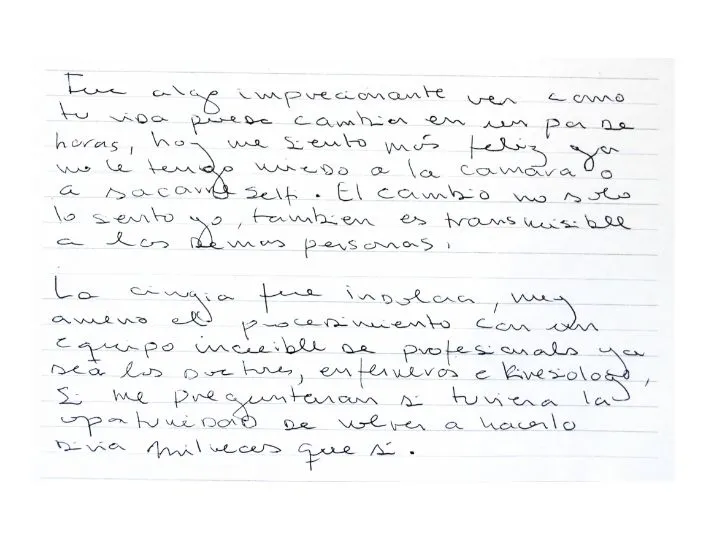 Fue algo imprecionante ver como
tu vida puede cambiar en un par de
horas, hoy me siento más feliz ya
no le tengo miedo a la camara o
a sacarme self. El cambio no solo
lo siento yo, tambien es transmisible
a las demas personas.
La cirugia fue indolora, muy
ameno el procedimiento con un
equipo increible de profesionals ya
sea los doctores, enfermeros e kinesiologo,
Si me preguntaran si tuviera la
oportunidad de volver a hacerlo
diria mil veces que sí.